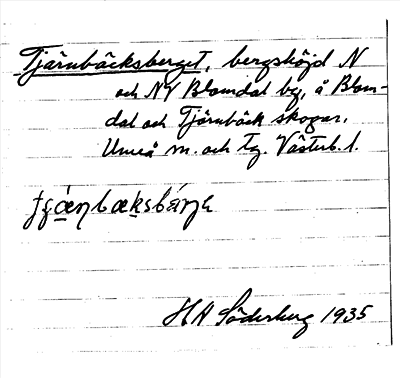 Tjärnbäcksberget, bergshöjd N
och NV Blomdal by, å Blom-
dal och Tjärnbäck skogar,
Umeå sn. och tg. Västerb. l.
H A Söderberg 1935